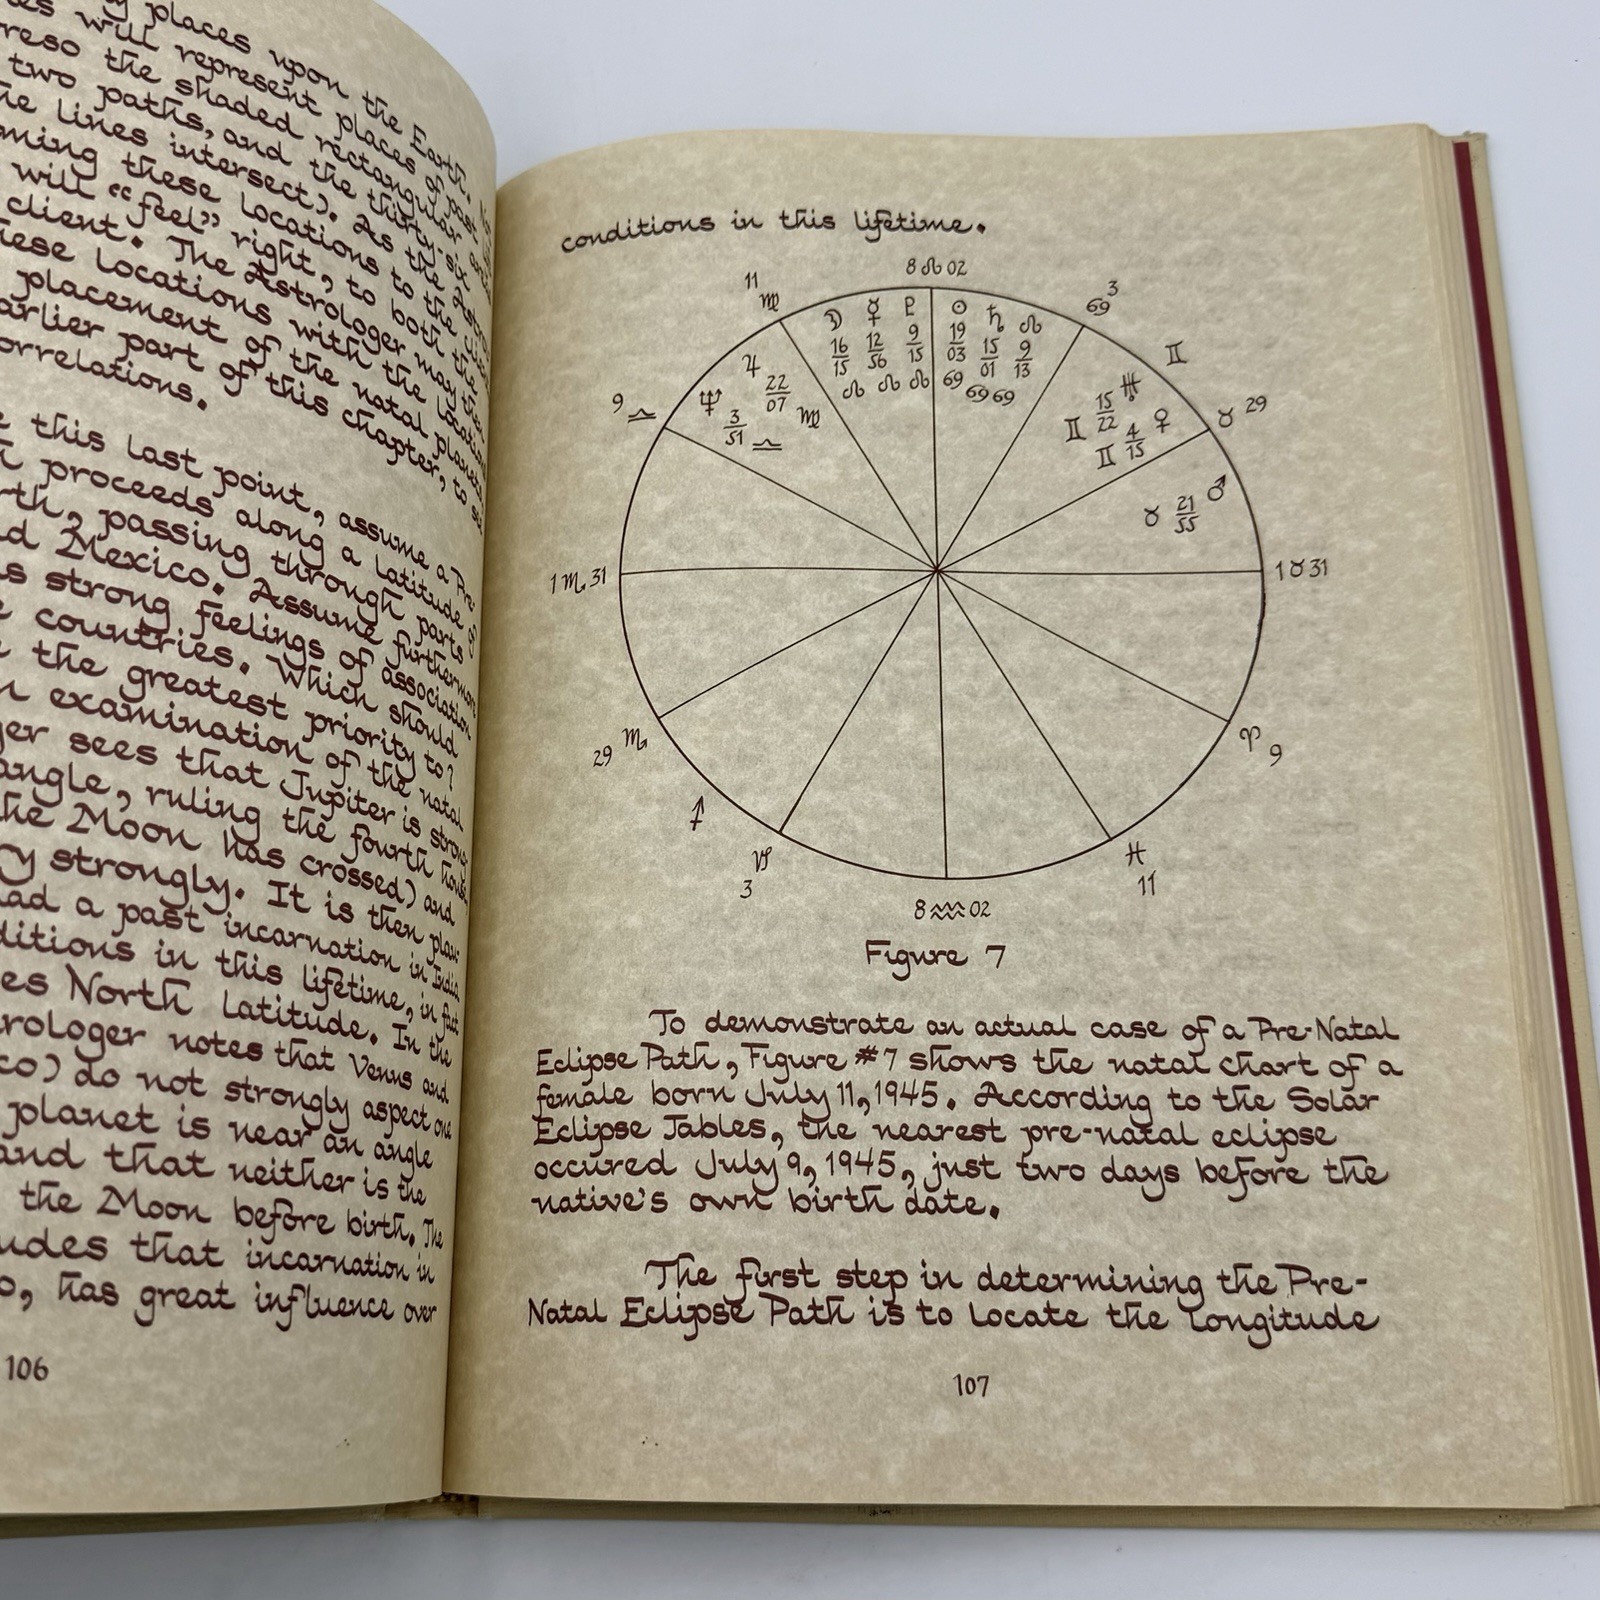 places upon the Earth.
will represent places of past
the shaded rectangular
two paths, and the thirty-six
lines intersect). As the
these locations to the
will “feel” right, to both the
client. The Astrologer may then
locations with the
placement of the natal planets
earlier part of this chapter, to
correlations.
this last point, assume a Pre-
proceeds along a latitude
passing through parts
Mexico. Assume furthermore
strong feelings of association
countries. Which should
the greatest priority to?
examination of the natal
sees that Jupiter is strong
angle, ruling the fourth house
the Moon has crossed) and
strongly. It is then
a past incarnation in India
in this lifetime, in fact
North latitude. In the
notes that Venus and
do not strongly aspect one
planet is near an angle
and that neither is the
the Moon before birth. The
that incarnation in
has great influence over
106
conditions in this lifetime.
8 ♌ 02
11 ♍
♋ 3
☽ ☿ ♇ ☉ ♄ ☊
16 12 9 19 15 9
15 56 15 03 01 13
♌ ♌ ♌ ♋ ♋ ♋
♊
♃ 22 07 ♍
♊ 15 22 ♅
9 ♎
♆ 3 51 ♎
♊ 4 15 ♀
♉ 29
♉ 21 55 ♂
1 ♏ 31
1 ♉ 31
29 ♏
♈ 9
♐
♑ 3
♓ 11
8 ♒ 02
Figure 7
To demonstrate an actual case of a Pre-Natal
Eclipse Path, Figure #7 shows the natal chart of a
female born July 11, 1945. According to the Solar
Eclipse Tables, the nearest pre-natal eclipse
occured July 9, 1945, just two days before the
native's own birth date.
The first step in determining the Pre-
Natal Eclipse Path is to locate the longitude
107